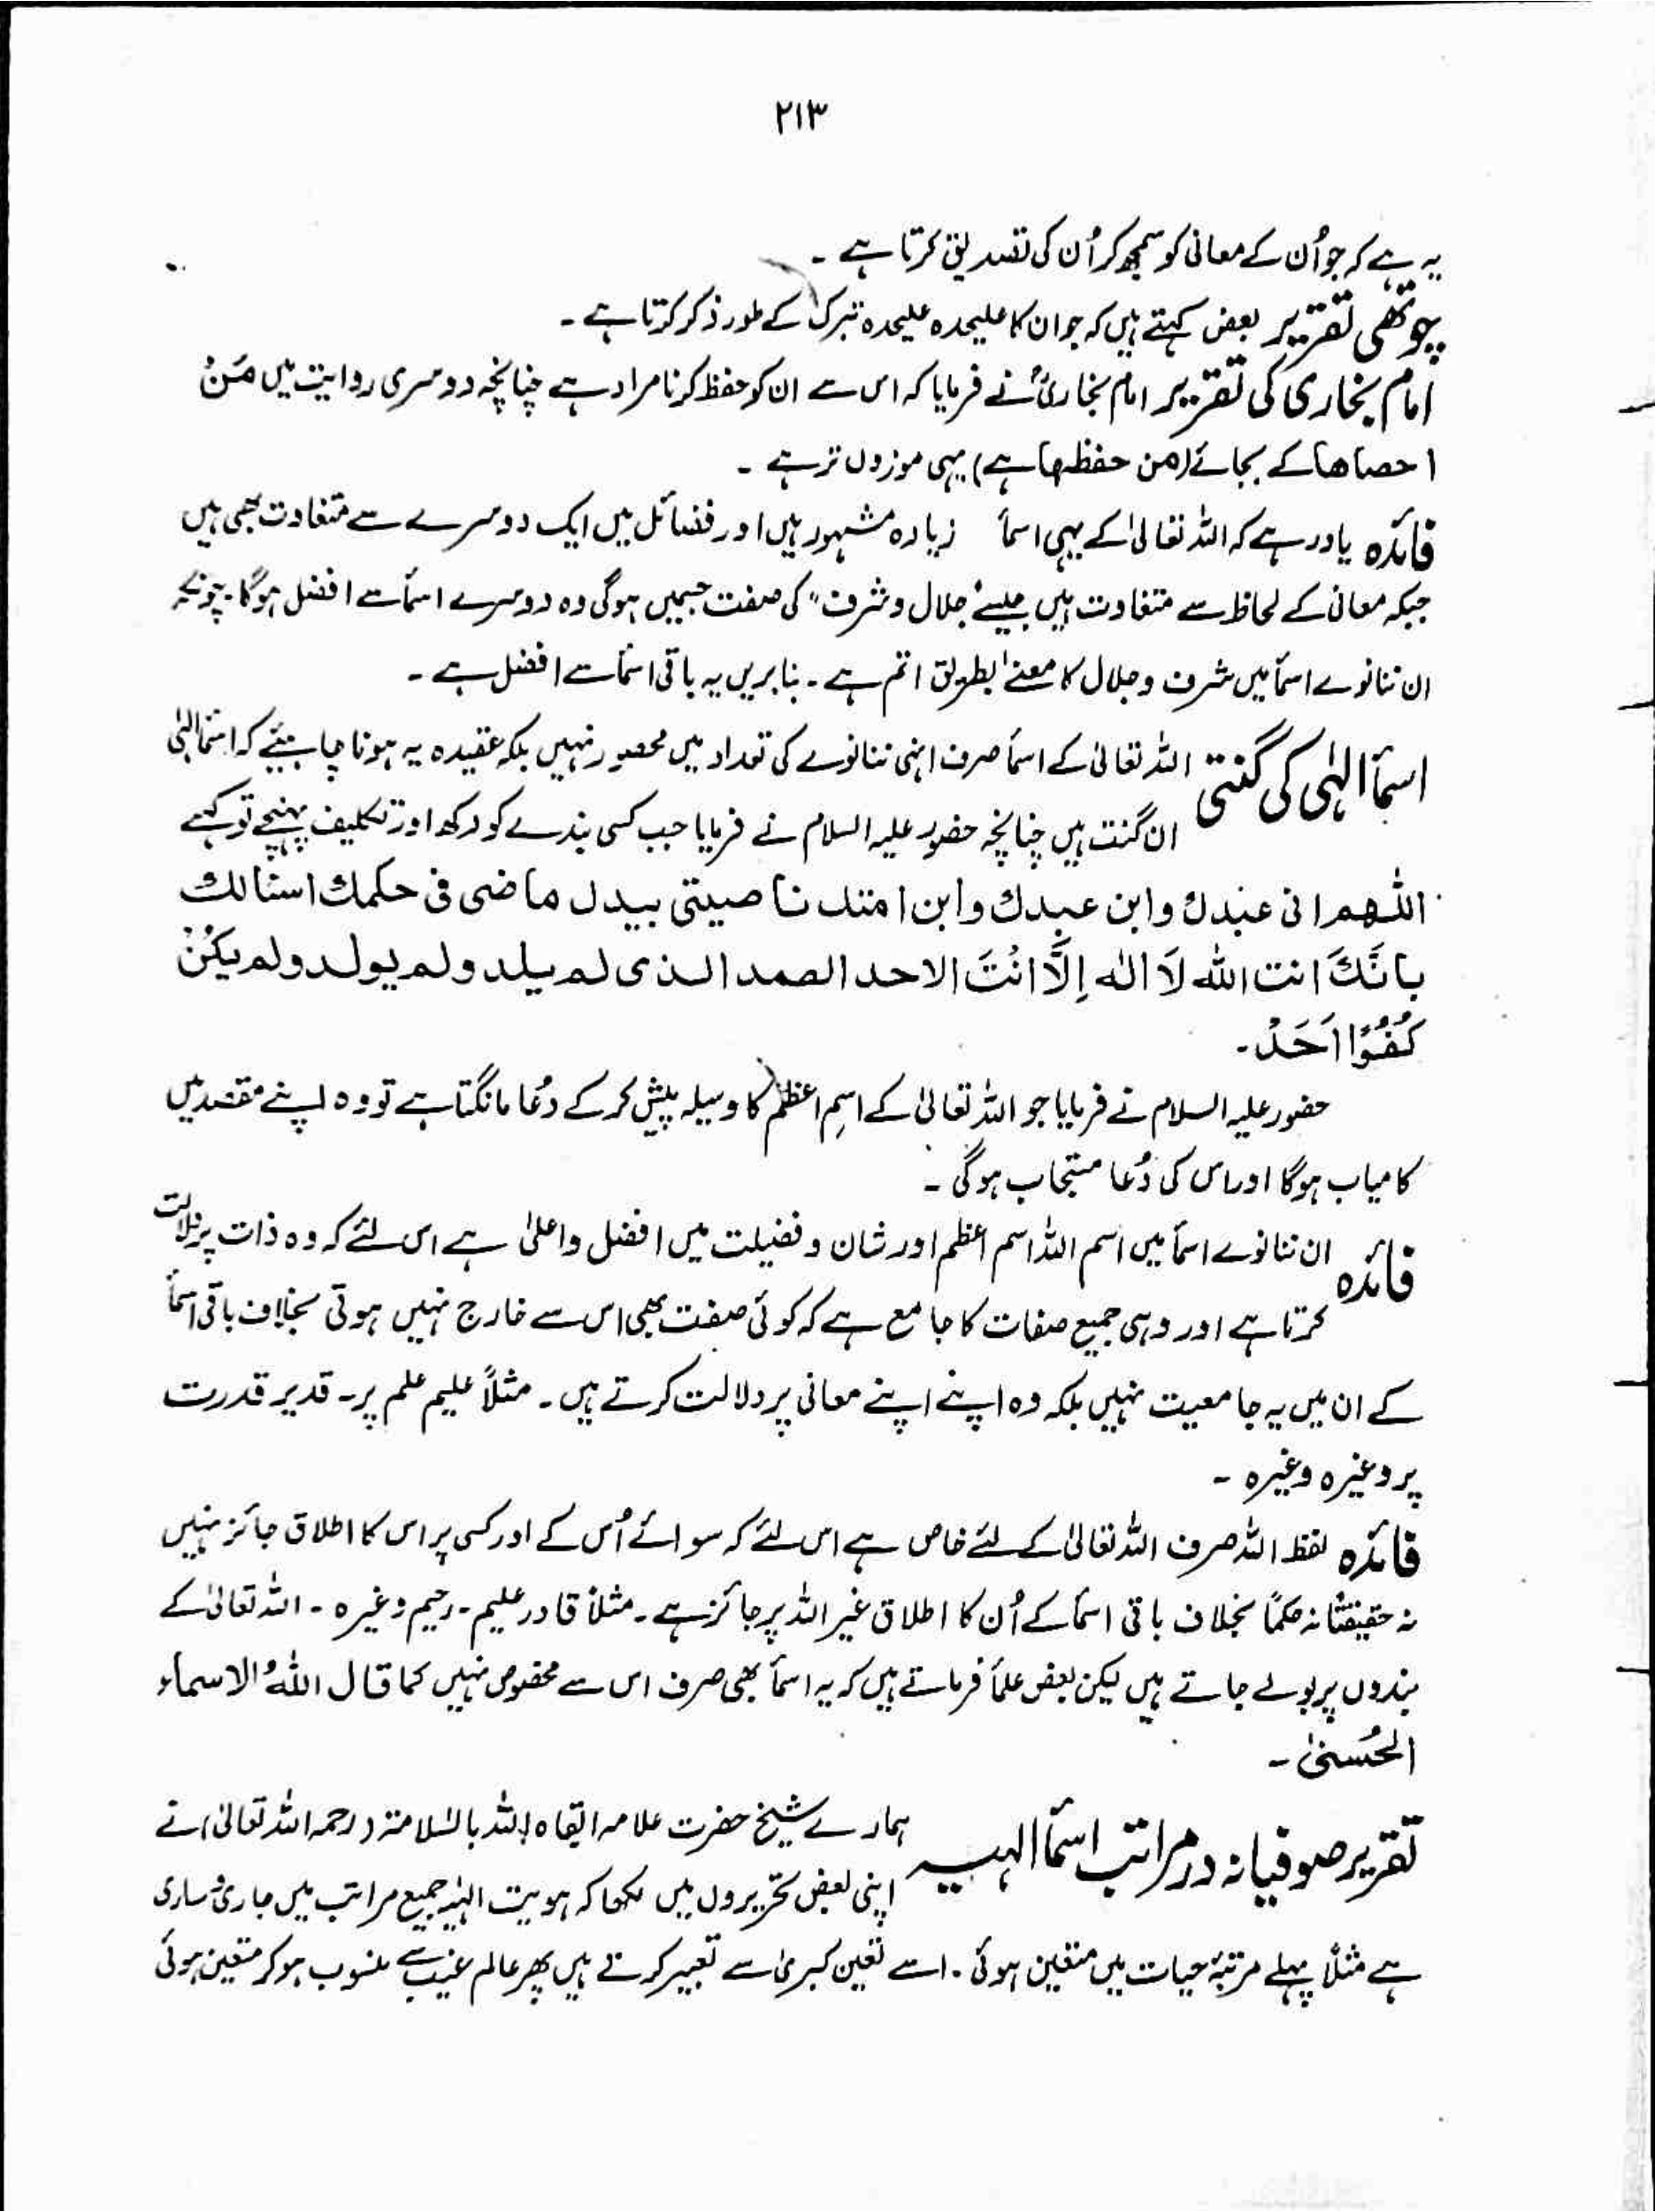 ۲۱۳
یہ ہے کہ جو اُن کے معانی کو سمجھ کر اُن کی تصدیق کرتا ہے ۔
چوتھی تقریر بعض کہتے ہیں کہ جو ان کا علیحدہ علیحدہ تبرک کے طور ذکر کرتا ہے ۔
امام بخاری کی تقریر امام بخاریؒ نے فرمایا کہ اس سے ان کو حفظ کرنا مراد ہے چنانچہ دوسری روایت میں مَنْ
احصاھا کے بجائے (من حفظہا ہے) یہی موزوں تر ہے ۔
فائدہ یاد رہے کہ اللہ تعالیٰ کے یہی اسمأ زیادہ مشہور ہیں اور فضائل میں ایک دوسرے سے متفاوت بھی ہیں
جبکہ معانی کے لحاظ سے متفاوت ہیں جیسے جلال و شرف" کی صفت جسمیں ہوگی وہ دوسرے اسمأ سے افضل ہوگا۔ چونکہ
ان ننانوے اسمأ میں شرف و جلال کا معنےٰ بطریق اتم ہے ۔ بنا بریں یہ باقی اسمأ سے افضل ہے ۔
اسمأ الہٰی کی گنتی اللہ تعالیٰ کے اسمأ صرف انہی ننانوے کی تعداد میں محصور نہیں بلکہ عقیدہ یہ ہونا چاہیئے کہ اسمأ الہٰی
ان گنت ہیں چنانچہ حضور علیہ السلام نے فرمایا جب کسی بندے کو دکھ اور تکلیف پہنچے تو کہے
اللھم انی عبدك وابن عبدك وابن امتك ناصیتی بیدك ماضی فی حکمك اسئالك
بانَّكَ انت اللہ لَا الٰہ اِلَّا انْتَ الاحد الصمد الذی لم یلد ولم یولد ولم یکُنْ
کُفُوًا اَحَدْ ۔
حضور علیہ السلام نے فرمایا جو اللہ تعالیٰ کے اسمِ اعظم کا وسیلہ پیش کر کے دُعا مانگتا ہے تو وہ اپنے مقصد میں
کامیاب ہوگا اور اس کی دُعا مستجاب ہوگی ۔
فائدہ ان ننانوے اسمأ میں اسم اللہ اسم اعظم اور شان و فضیلت میں افضل و اعلیٰ ہے اس لئے کہ وہ ذات پر دلالت
کرتا ہے اور وہی جمیع صفات کا جامع ہے کہ کوئی صفت بھی اس سے خارج نہیں ہوتی بخلاف باقی اسمأ
کے ان میں یہ جامعیت نہیں بلکہ وہ اپنے اپنے معانی پر دلالت کرتے ہیں ۔ مثلاً علیم علم پر۔ قدیر قدرت
پر وغیرہ وغیرہ ۔
فائدہ لفظ اللہ صرف اللہ تعالیٰ کے لئے خاص ہے اس لئے کہ سوائے اُس کے اور کسی پر اس کا اطلاق جائز نہیں
نہ حقیقتًا نہ حکمًا بخلاف باقی اسمأ کے اُن کا اطلاق غیر اللہ پر جائز ہے ۔ مثلاً قادر علیم ۔ رحیم وغیرہ ۔ اللہ تعالیٰ کے
بندوں پر بولے جاتے ہیں لیکن بعض علمأ فرماتے ہیں کہ یہ اسمأ بھی صرف اس سے مخصوص نہیں کما قال اللہُ الاسماء
الحُسنیٰ ۔
تقریر صوفیانہ در مراتب اسمأ الہیہ ہمارے شیخ حضرت علامہ ابقاہ اللہ بالسلامۃ (رحمہ اللہ تعالیٰ) نے
اپنی بعض تحریروں میں لکھا کہ ہویت الہٰیہ جمیع مراتب میں جاری و ساری
ہے مثلاً پہلے مرتبۂ حیات میں متعین ہوئی ۔ اسے تعین کبریٰ سے تعبیر کرتے ہیں پھر عالم غیب سے منسوب ہو کر متعین ہوئی